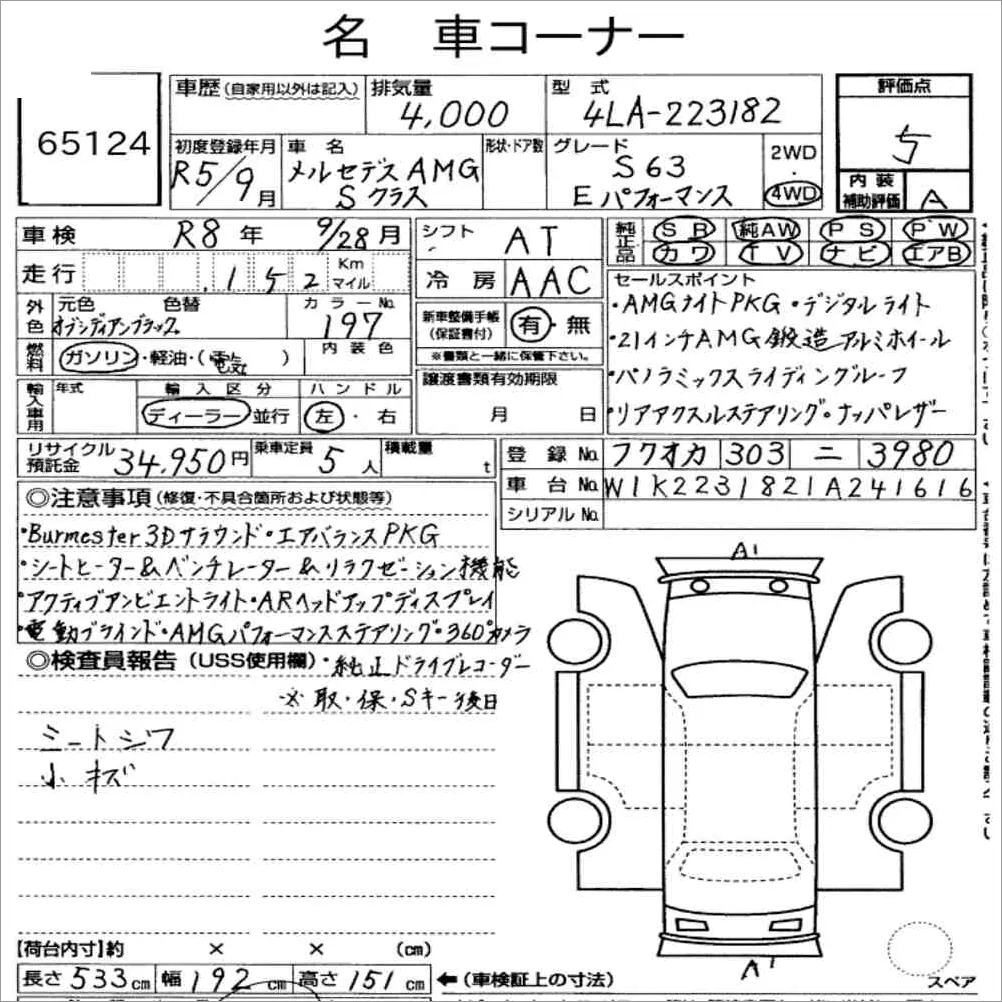 名 車コーナー
65124
車歴(自家用以外は記入) 排気量 4,000 型式 4LA-223182 評価点 5
初度登録年月 R5/9月 車名 メルセデスAMG Sクラス 形状・ドア数 グレード S63 Eパフォーマンス 2WD・4WD 内装補助評価 A
車検 R8年 9/28月 シフト AT 純正品 SR 純AW PS PW
走行 152 Km マイル 冷房 AAC カワ TV ナビ エアB
外色 元色 色替 オブシディアンブラック カラーNo. 197
新車整備手帳(保証書付) 有・無
※書類と一緒に保管下さい。
燃料 ガソリン・軽油・(電気) 内装色
輸入車用 年式 輸入区分 ディーラー 並行 ハンドル 左・右
譲渡書類有効期限 月 日
セールスポイント
・AMGナイトPKG・デジタルライト
・21インチAMG鍛造アルミホイール
・パノラミックスライディングルーフ
・リアアクスルステアリング・ナッパレザー
リサイクル預託金 34,950円 乗車定員 5人 積載量 t
登録No. フクオカ 303 ニ 3980
車台No. W1K2231821A241616
シリアルNo.
◎注意事項(修復・不具合箇所および状態等)
・Burmester3Dサラウンド・エアバランスPKG
・シートヒーター&ベンチレーター&リラクゼーション機能
・アクティブアンビエントライト・ARヘッドアップディスプレイ
・電動ブラインド・AMGパフォーマンスステアリング・360°カメラ
◎検査員報告(USS使用欄)・純正ドライブレコーダー
※取・保・Sキー後日
シートシワ
小キズ
A1
A1
スペア
【荷台内寸】約 × × (cm)
長さ 533cm 幅 192cm 高さ 151cm ←(車検証上の寸法)